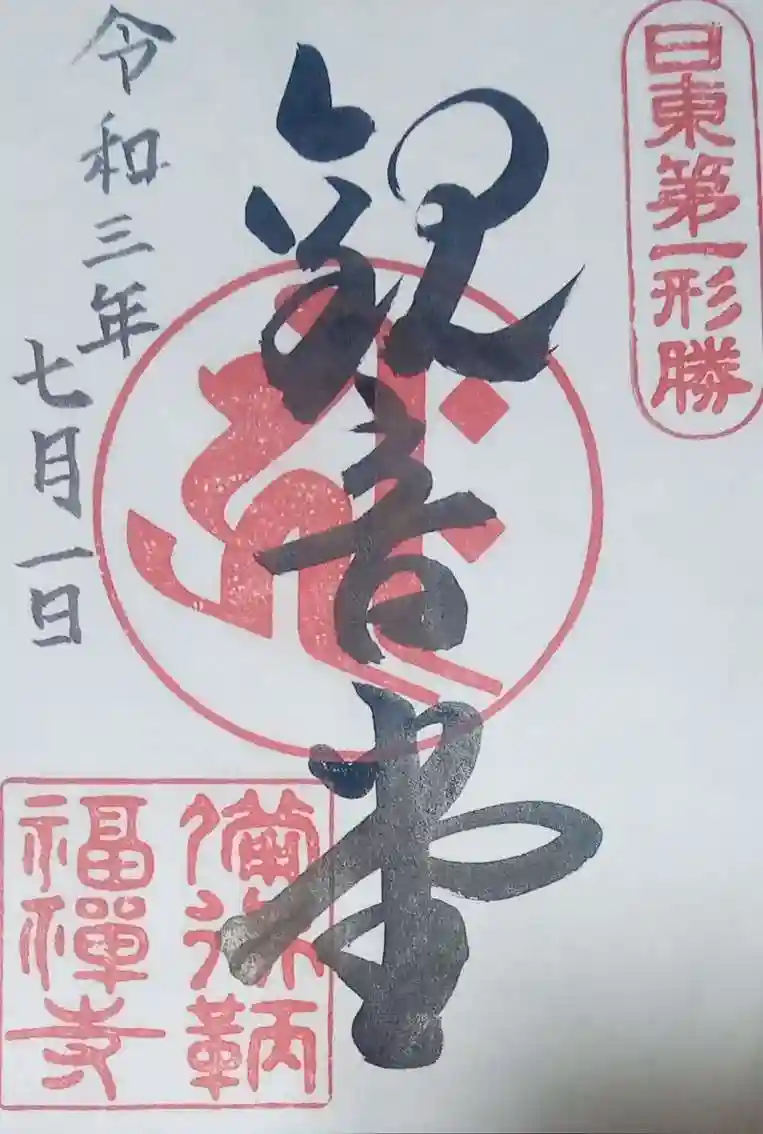 日東第一形勝
観音堂
令和三年
七月一日
備後鞆
福禪寺